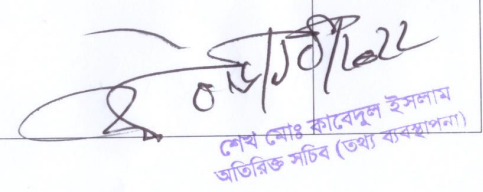 ০৬/১০/২০২২
শেখ মোঃ কাবেদুল ইসলাম
অতিরিক্ত সচিব (তথ্য ব্যবস্থাপনা)